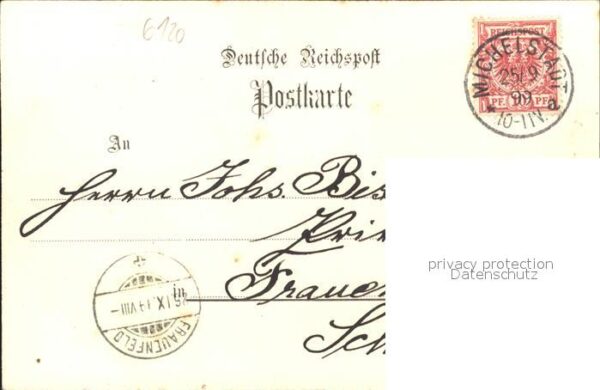 6120
Deutsche Reichspost
Postkarte
REICHSPOST
PF PF
MICHELSTADT
25/9
99
* 10-11V. a
An
Herrn Johs. Bis
Prie
in Fraue
Sch
FRAUENFELD
IX. VIII-
privacy protection
Datenschutz